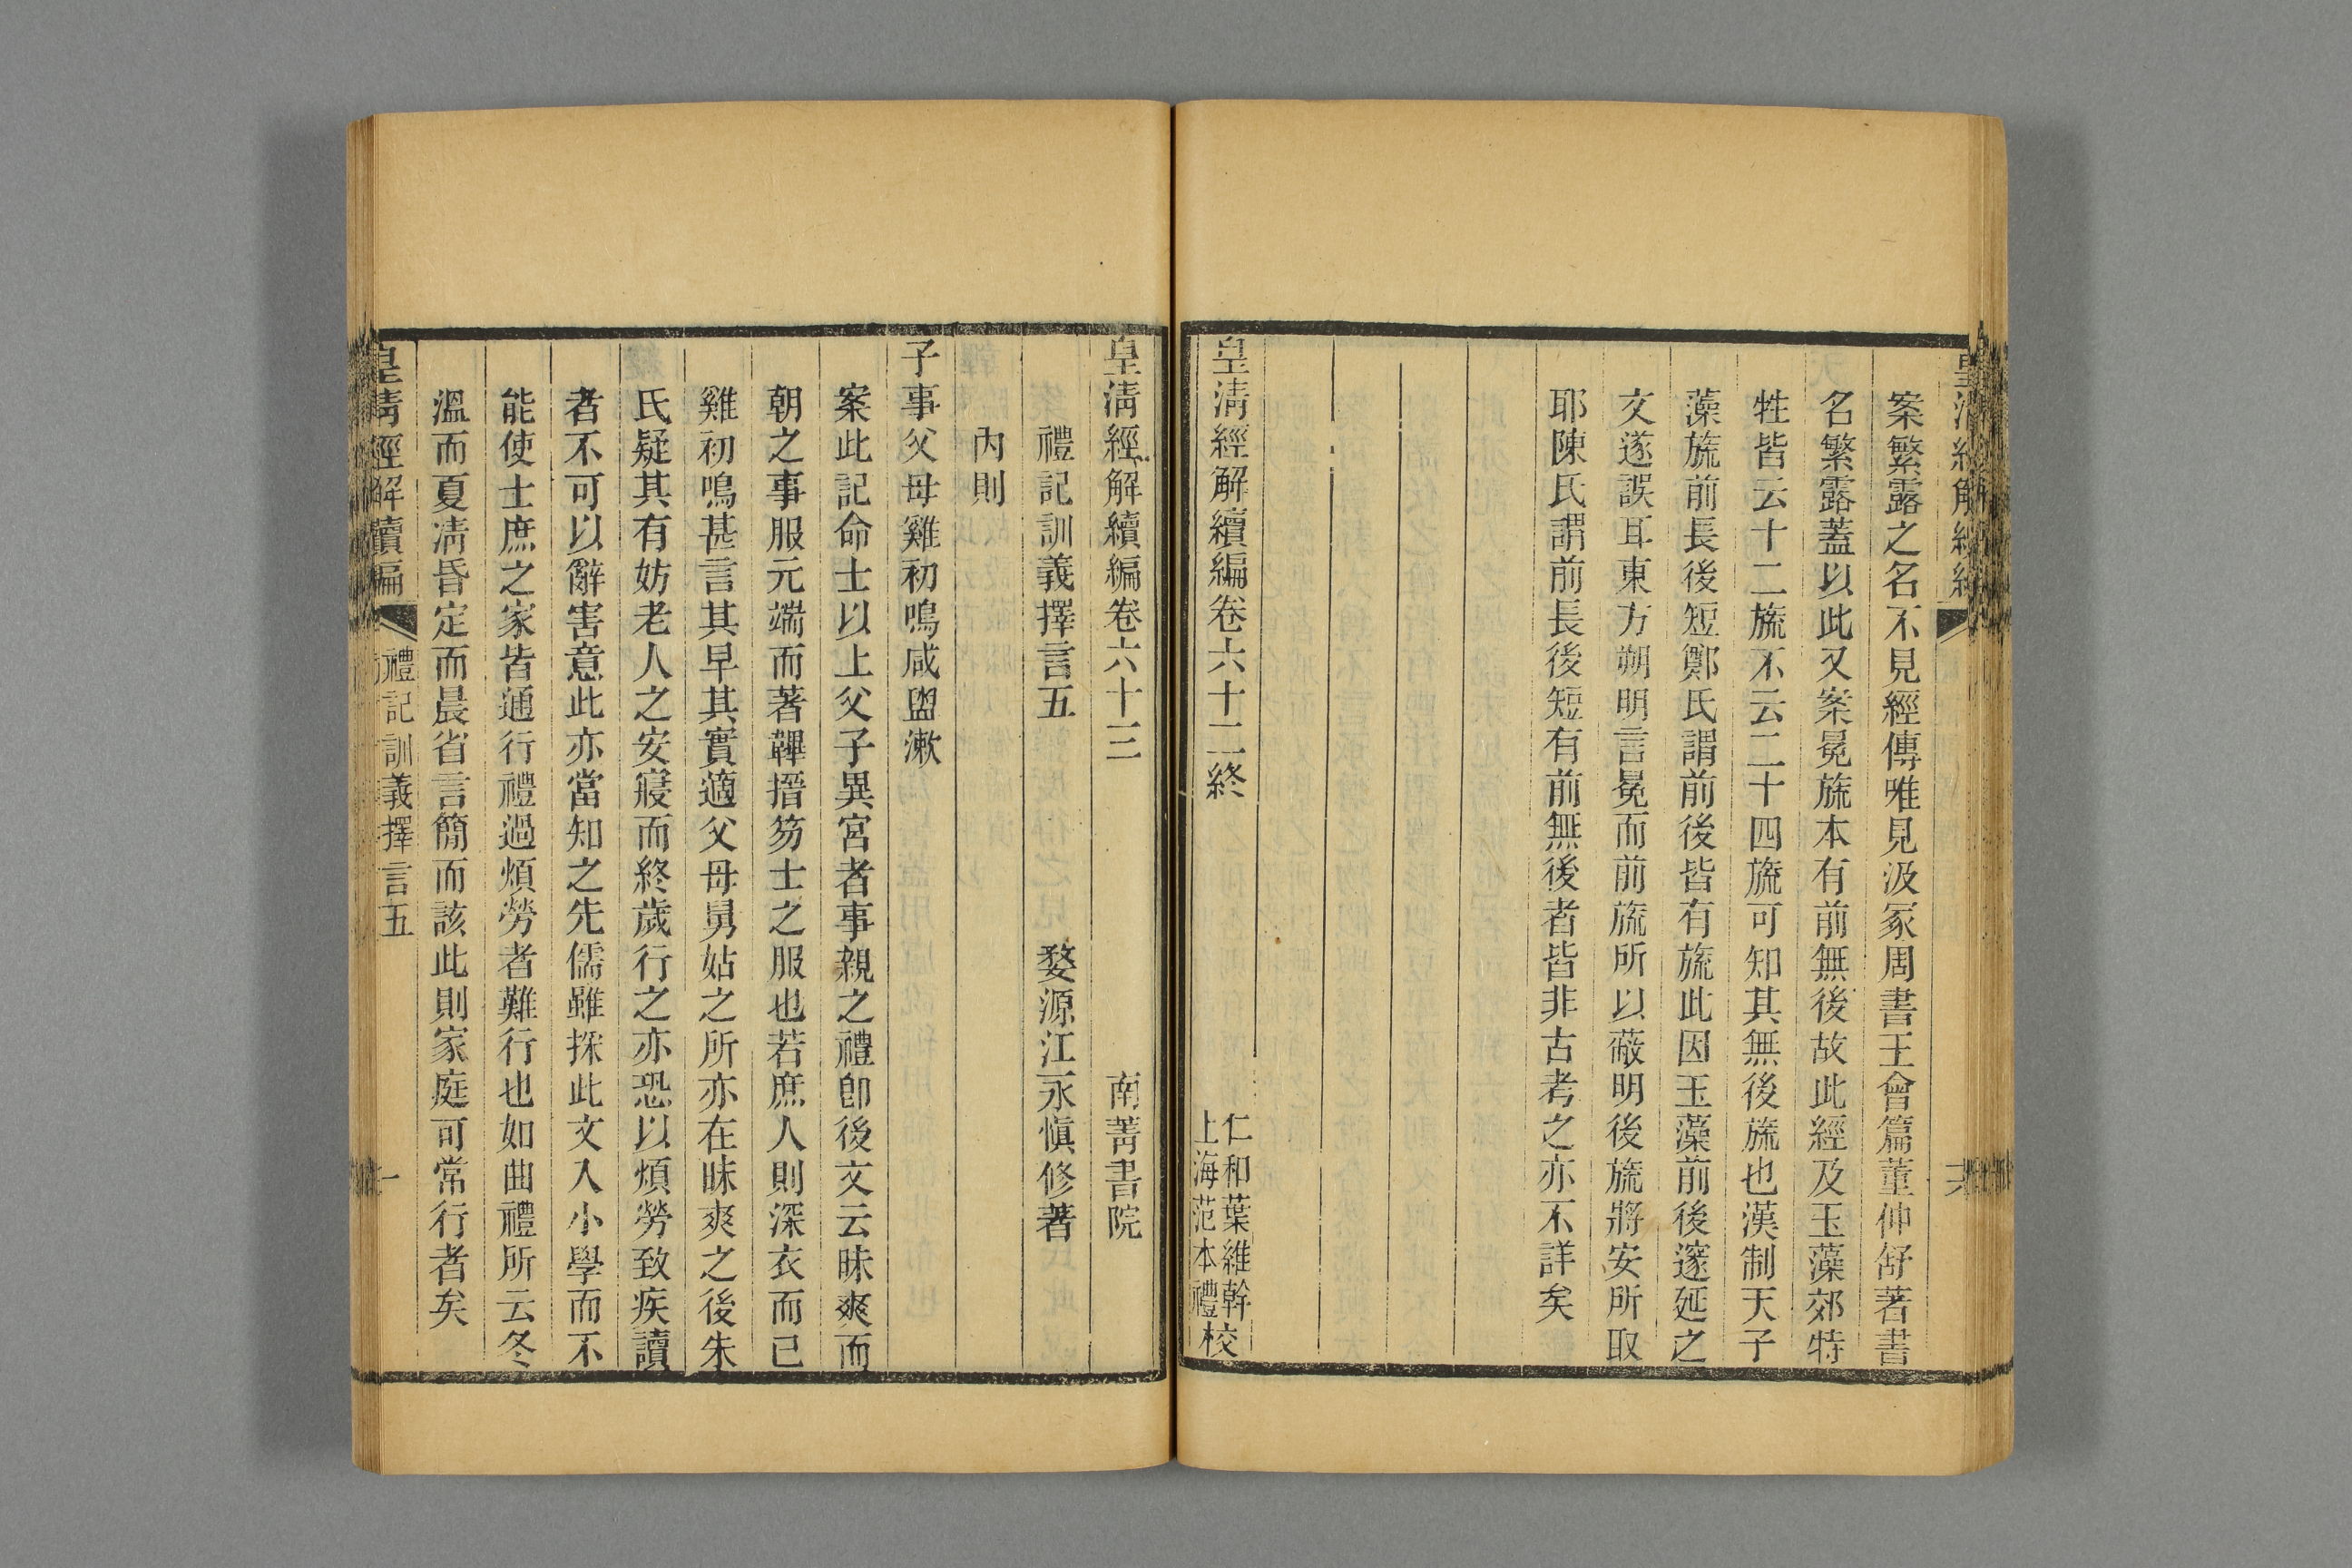 案繁露之名不見經傳唯見汲冢周書王會篇董仲舒著書
名繁露蓋以此又案冕旒本有前無後故此經及玉藻郊特
牲皆云十二旒不云二十四旒可知其無後旒也漢制天子
藻旒前長後短鄭氏謂前後皆有旒此因玉藻前後邃延之
文遂誤耳東方朔明言冕而前旒所以蔽明後旒將安所取
耶陳氏謂前長後短有前無後者皆非古考之亦不詳矣
皇清經解續編卷六十二終
仁和葉維幹
上海范本禮校
皇清經解續編卷六十三
南菁書院
禮記訓義擇言五
婺源江永愼修著
內則
子事父母雞初鳴咸盥漱
案此記命士以上父子異宮者事親之禮卽後文云昧爽而
朝之事服元端而著韠搢笏士之服也若庶人則深衣而已
雞初鳴甚言其早其實適父母舅姑之所亦在昧爽之後朱
氏疑其有妨老人之安寢而終歲行之亦恐以煩勞致疾讀
者不可以辭害意此亦當知之先儒雖採此文入小學而不
能使士庶之家皆通行禮過煩勞者難行也如曲禮所云冬
溫而夏凊昏定而晨省言簡而該此則家庭可常行者矣
皇清經解續編
禮記訓義擇言五
一